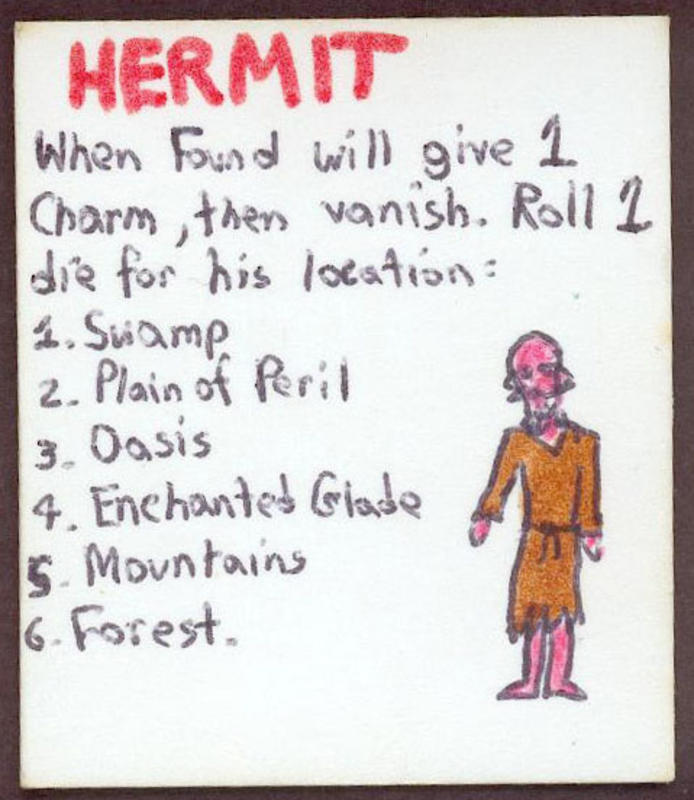 HERMIT
When Found will give 1
Charm, then vanish. Roll 1
die for his location:
1. Swamp
2. Plain of Peril
3. Oasis
4. Enchanted Glade
5. Mountains
6. Forest.